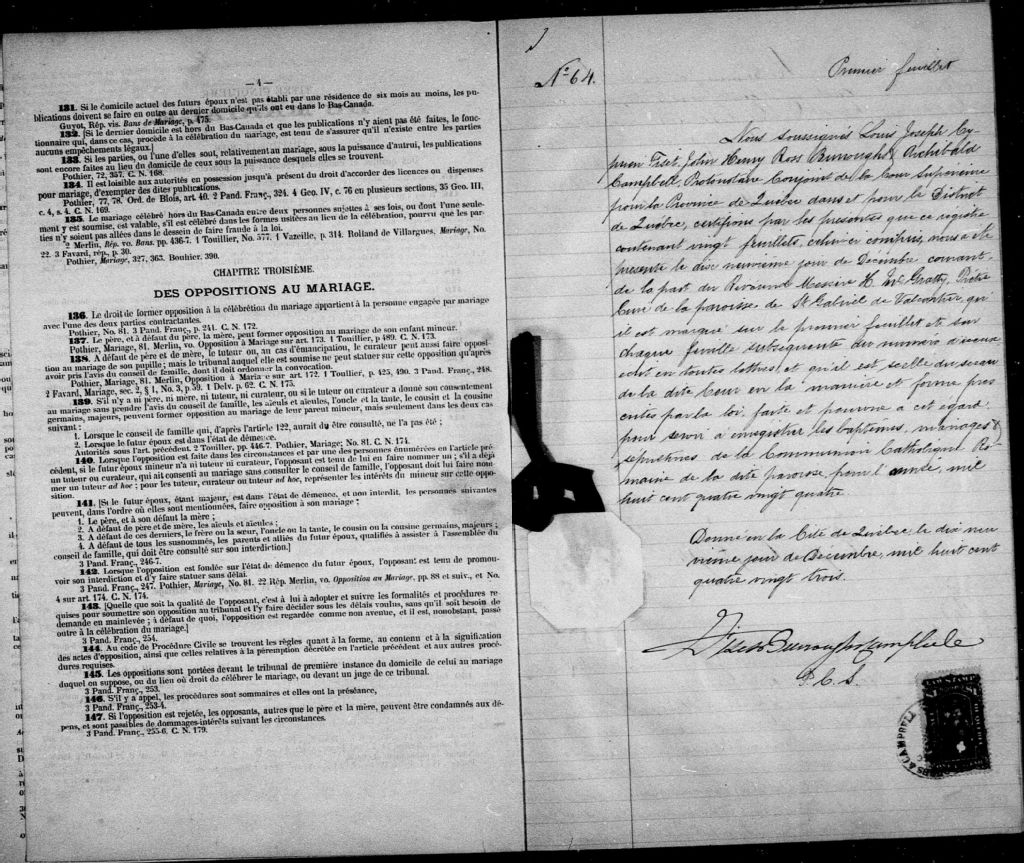 — 4 —
131. Si le domicile actuel des futurs époux n'est pas établi par une résidence de six mois au moins, les pu-
blications doivent se faire en outre au dernier domicile qu'ils ont eu dans le Bas-Canada.
Guyot, Rép. vis. Bans de Mariage, p. 475.
132. [Si le dernier domicile est hors du Bas-Canada et que les publications n'y aient pas été faites, le fonc-
tionnaire qui, dans ce cas, procède à la célébration du mariage, est tenu de s'assurer qu'il n'existe entre les parties
aucuns empêchements légaux.]
133. Si les parties, ou l'une d'elles sont, relativement au mariage, sous la puissance d'autrui, les publications
sont encore faites au lieu du domicile de ceux sous la puissance desquels elles se trouvent.
Pothier, 72, 357. C. N. 168.
134. Il est loisible aux autorités en possession jusqu'à présent du droit d'accorder des licences ou dispenses
pour mariage, d'exempter des dites publications.
Pothier, 77, 78. Ord. de Blois, art. 40. 2 Pand. Franç., 324. 4 Geo. IV, c. 76 en plusieurs sections, 35 Geo. III,
c. 4, s. 4. C. N. 169.
135. Le mariage célébré hors du Bas-Canada entre deux personnes sujettes à ses lois, ou dont l'une seule-
ment y est soumise, est valable, s'il est célébré dans les formes usitées au lieu de la célébration, pourvu que les par-
ties n'y soient pas allées dans le dessein de faire fraude à la loi.
2 Merlin, Rép. vo. Bans. pp. 436-7. 1 Touillier, No. 577. 1 Vazeille, p. 314. Rolland de Villargues, Mariage, No.
22. 3 Favard, rép., p. 30.
Pothier, Mariage, 327, 363. Bouhier. 390.
CHAPITRE TROISIÈME.
DES OPPOSITIONS AU MARIAGE.
136. Le droit de former opposition à la célébration du mariage appartient à la personne engagée par mariage
avec l'une des deux parties contractantes.
Pothier, No. 81. 3 Pand. Franç., p. 241. C. N. 172.
137. Le père, et à défaut du père, la mère, peut former opposition au mariage de son enfant mineur.
Pothier, Mariage, 81. Merlin, vo. Opposition à Mariage sur art. 173. 1 Touillier, p 489. C. N. 173.
138. A défaut de père et de mère, le tuteur ou, au cas d'émancipation, le curateur peut aussi faire opposi-
tion au mariage de son pupille ; mais le tribunal auquel elle est soumise ne peut statuer sur cette opposition qu'après
avoir pris l'avis du conseil de famille, dont il doit ordonner la convocation.
Pothier, Mariage, 81. Merlin, Opposition à Mariage sur art. 172. 1 Touillier, p. 425, 490. 3 Pand. Franç., 248.
2 Favard, Mariage, sec. 2, § 1, No. 3, p. 59. 1 Delv. p. 62. C. N. 175.
139. S'il n'y a ni père, ni mère, ni tuteur, ni curateur, ou si le tuteur ou curateur a donné son consentement
au mariage sans prendre l'avis du conseil de famille, les aïeuls et aïeules, l'oncle et la tante, le cousin et la cousine
germains, majeurs, peuvent former opposition au mariage de leur parent mineur, mais seulement dans les deux cas
suivant :
1. Lorsque le conseil de famille qui, d'après l'article 122, aurait du être consulté, ne l'a pas été ;
2. Lorsque le futur époux est dans l'état de démence.
Autorités sous l'art. précédent. 2 Touiller, pp. 446-7. Pothier, Mariage; No. 81. C. N. 174.
140. Lorsque l'opposition est faite dans les circonstances et par une des personnes énumérées en l'article pré-
cédent, si le futur époux mineur n'a ni tuteur ni curateur, l'opposant est tenu de lui en faire nommer un ; s'il a déjà
un tuteur ou curateur, qui ait consenti au mariage sans consulter le conseil de famille, l'opposant doit lui faire nom-
mer un tuteur ad hoc ; pour les tuteur, curateur ou tuteur ad hoc, représenter les intérêts du mineur sur cette oppo-
sition.
141. [Si le futur époux, étant majeur, est dans l'état de démence, et non interdit, les personnes suivantes
peuvent, dans l'ordre où elles sont mentionnées, faire opposition à son mariage ;
1. Le père, et à son défaut la mère ;
2. A défaut de père et de mère, les aïeuls et aïeules ;
3. A défaut de ces derniers, le frère ou la sœur, l'oncle ou la tante, le cousin ou la cousine germains, majeurs ;
4. A défaut de tous les susnommés, les parents et alliés du futur époux, qualifiés à assister à l'assemblée du
conseil de famille, qui doit être consulté sur son interdiction.]
3 Pand. Franç., 246-7.
142. Lorsque l'opposition est fondée sur l'état de démence du futur époux, l'opposant est tenu de promou-
voir son interdiction et d'y faire statuer sans délai.
3 Pand. Franç., 247. Pothier, Mariage, No. 81. 22 Rép. Merlin, vo. Opposition au Mariage, pp. 88 et suiv., et No.
4 sur art. 174. C. N. 174.
143. [Quelle que soit la qualité de l'opposant, c'est à lui à adopter et suivre les formalités et procédures re-
quises pour soumettre son opposition au tribunal et l'y faire décider sous les délais voulus, sans qu'il soit besoin de
demande en mainlevée ; à défaut de quoi, l'opposition est regardée comme non avenue, et il est, nonobstant, passé
outre à la célébration du mariage.]
3 Pand. Franç., 254.
144. Au code de Procédure Civile se trouvent les règles quant à la forme, au contenu et à la signification
des actes d'opposition, ainsi que celles relatives à la péremption décrétée en l'article précédent et aux autres procé-
dures requises.
145. Les oppositions sont portées devant le tribunal de première instance du domicile de celui au mariage
duquel on suppose, ou du lieu où droit de célébrer le mariage, ou devant un juge de ce tribunal.
3 Pand. Franç., 253.
146. S'il y a appel, les procédures sont sommaires et elles ont la préséance,
3 Pand. Franç., 253-4.
147. Si l'opposition est rejetée, les opposants, autres que le père et la mère, peuvent être condamnés aux dé-
pens, et sont passibles de dommages-intérêts suivant les circonstances.
3 Pand. Franç., 255-6. C. N. 179.
No 64.
Premier feuillet
Nous soussignés Louis Joseph Cy-
prien Fiset, John Henry Ross Burroughs & Archibald
Campbell, Protonotaire Conjoint de la Cour Supérieure
pour la Province de Québec dans et pour le District
de Québec, certifions par les présentes que ce registre
contenant vingt feuillets, celui-ci compris, nous a été
présenté le dix neuvième jour de Décembre courant
de la part du Révérend Messire H. McGratty, Prêtre
Curé de la paroisse de St Gabriel de Valcartier, qu'
il est marqué sur le premier feuillet et sur
chaque feuille subséquente du numéro d'iceux
écrit en toutes lettres, et qu'il est scellé du sceau
de la dite Cour en la manière et forme pres
crites par la loi, faite et pourvue à cet égard,
pour servir à enregistrer les baptêmes, mariages &
sépultures de la Communion Catholique Ro
maine de la dite paroisse pour l'année, mil
huit cent quatre vingt quatre.
Donné en la Cité de Québec, le dix neu
vième jour de Décembre, mil huit cent
quatre vingt trois.
Fiset Burroughs Campbell
P. C. S.